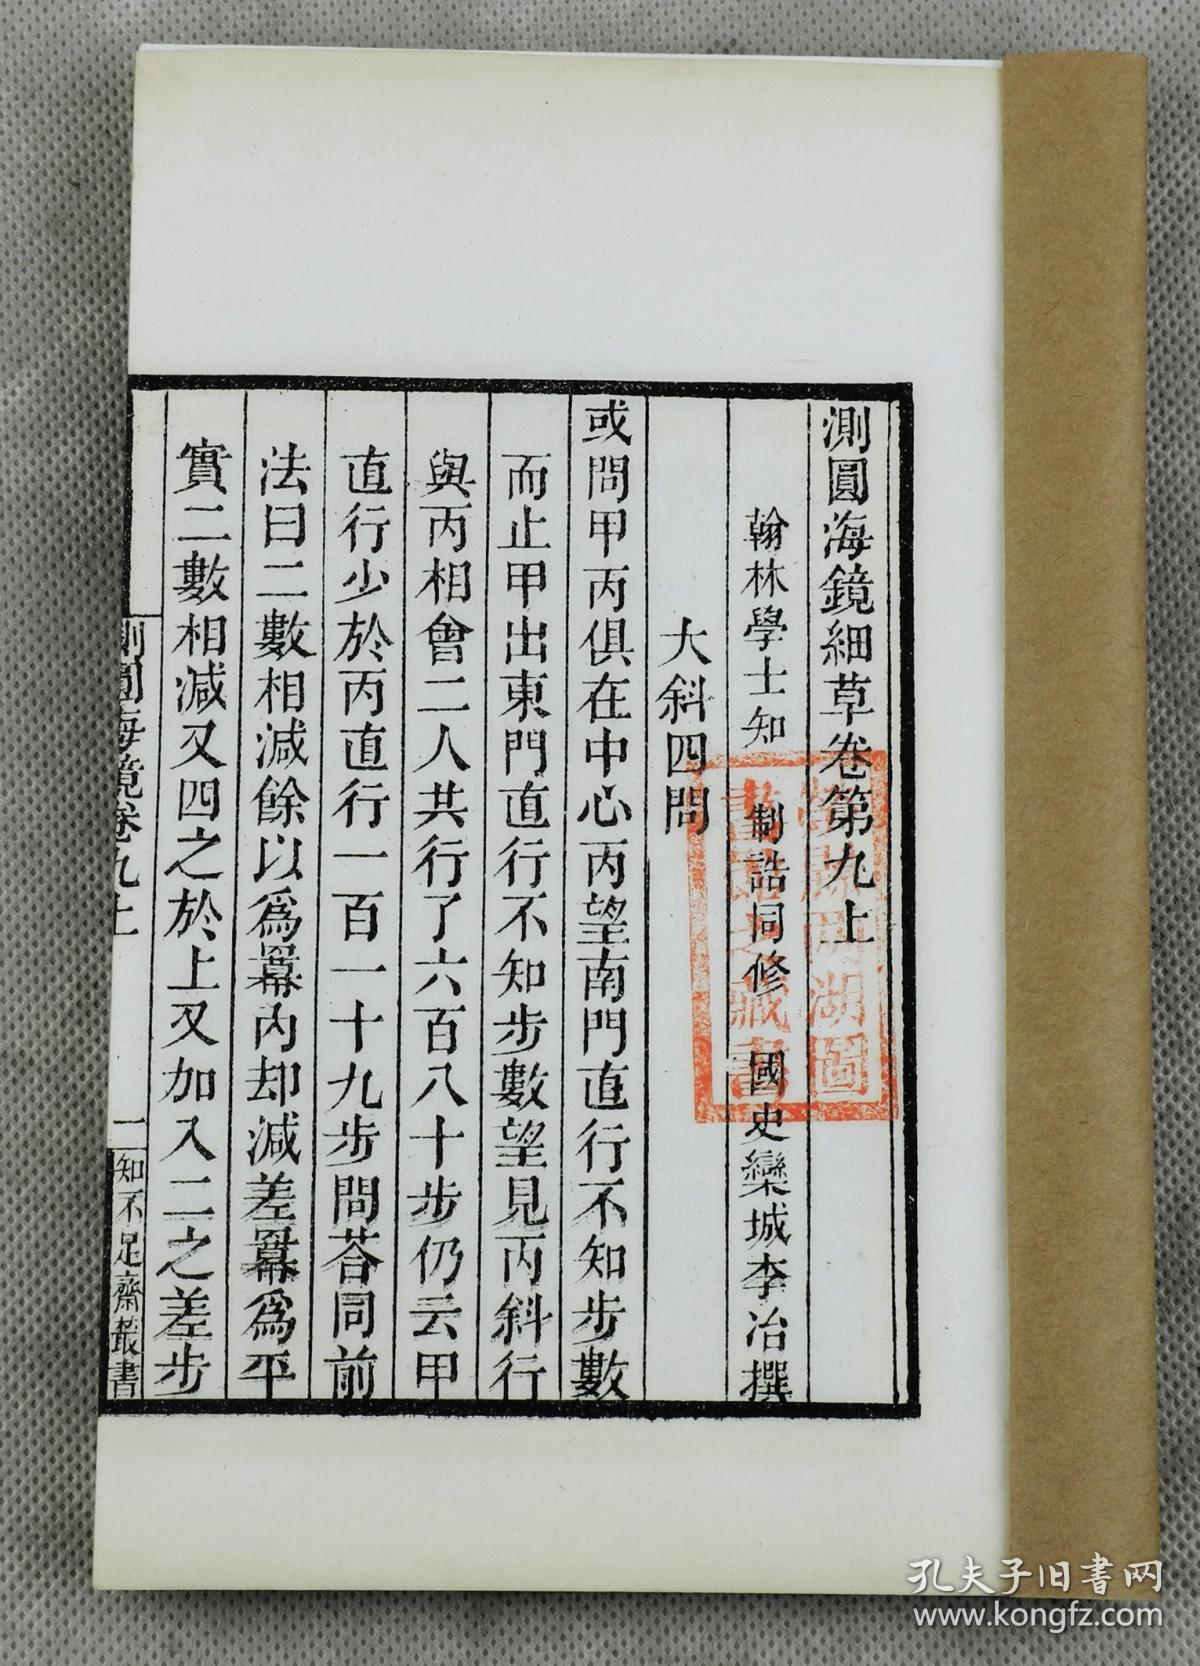 測圓海鏡細草卷第九上
翰林學士知 制誥同修 國史欒城李冶撰
大斜四問
或問甲丙俱在中心丙望南門直行不知步數
而止甲出東門直行不知步數望見丙斜行
與丙相會二人共行了六百八十步仍云甲
直行少於丙直行一百一十九步問荅同前
法曰二數相減餘以爲冪內却減差冪爲平
實二數相減又四之於上又加入二之差步
測圓海鏡卷九上
一
知不足齋叢書
湖圖
書
之藏書
孔夫子旧书网
www.kongfz.com